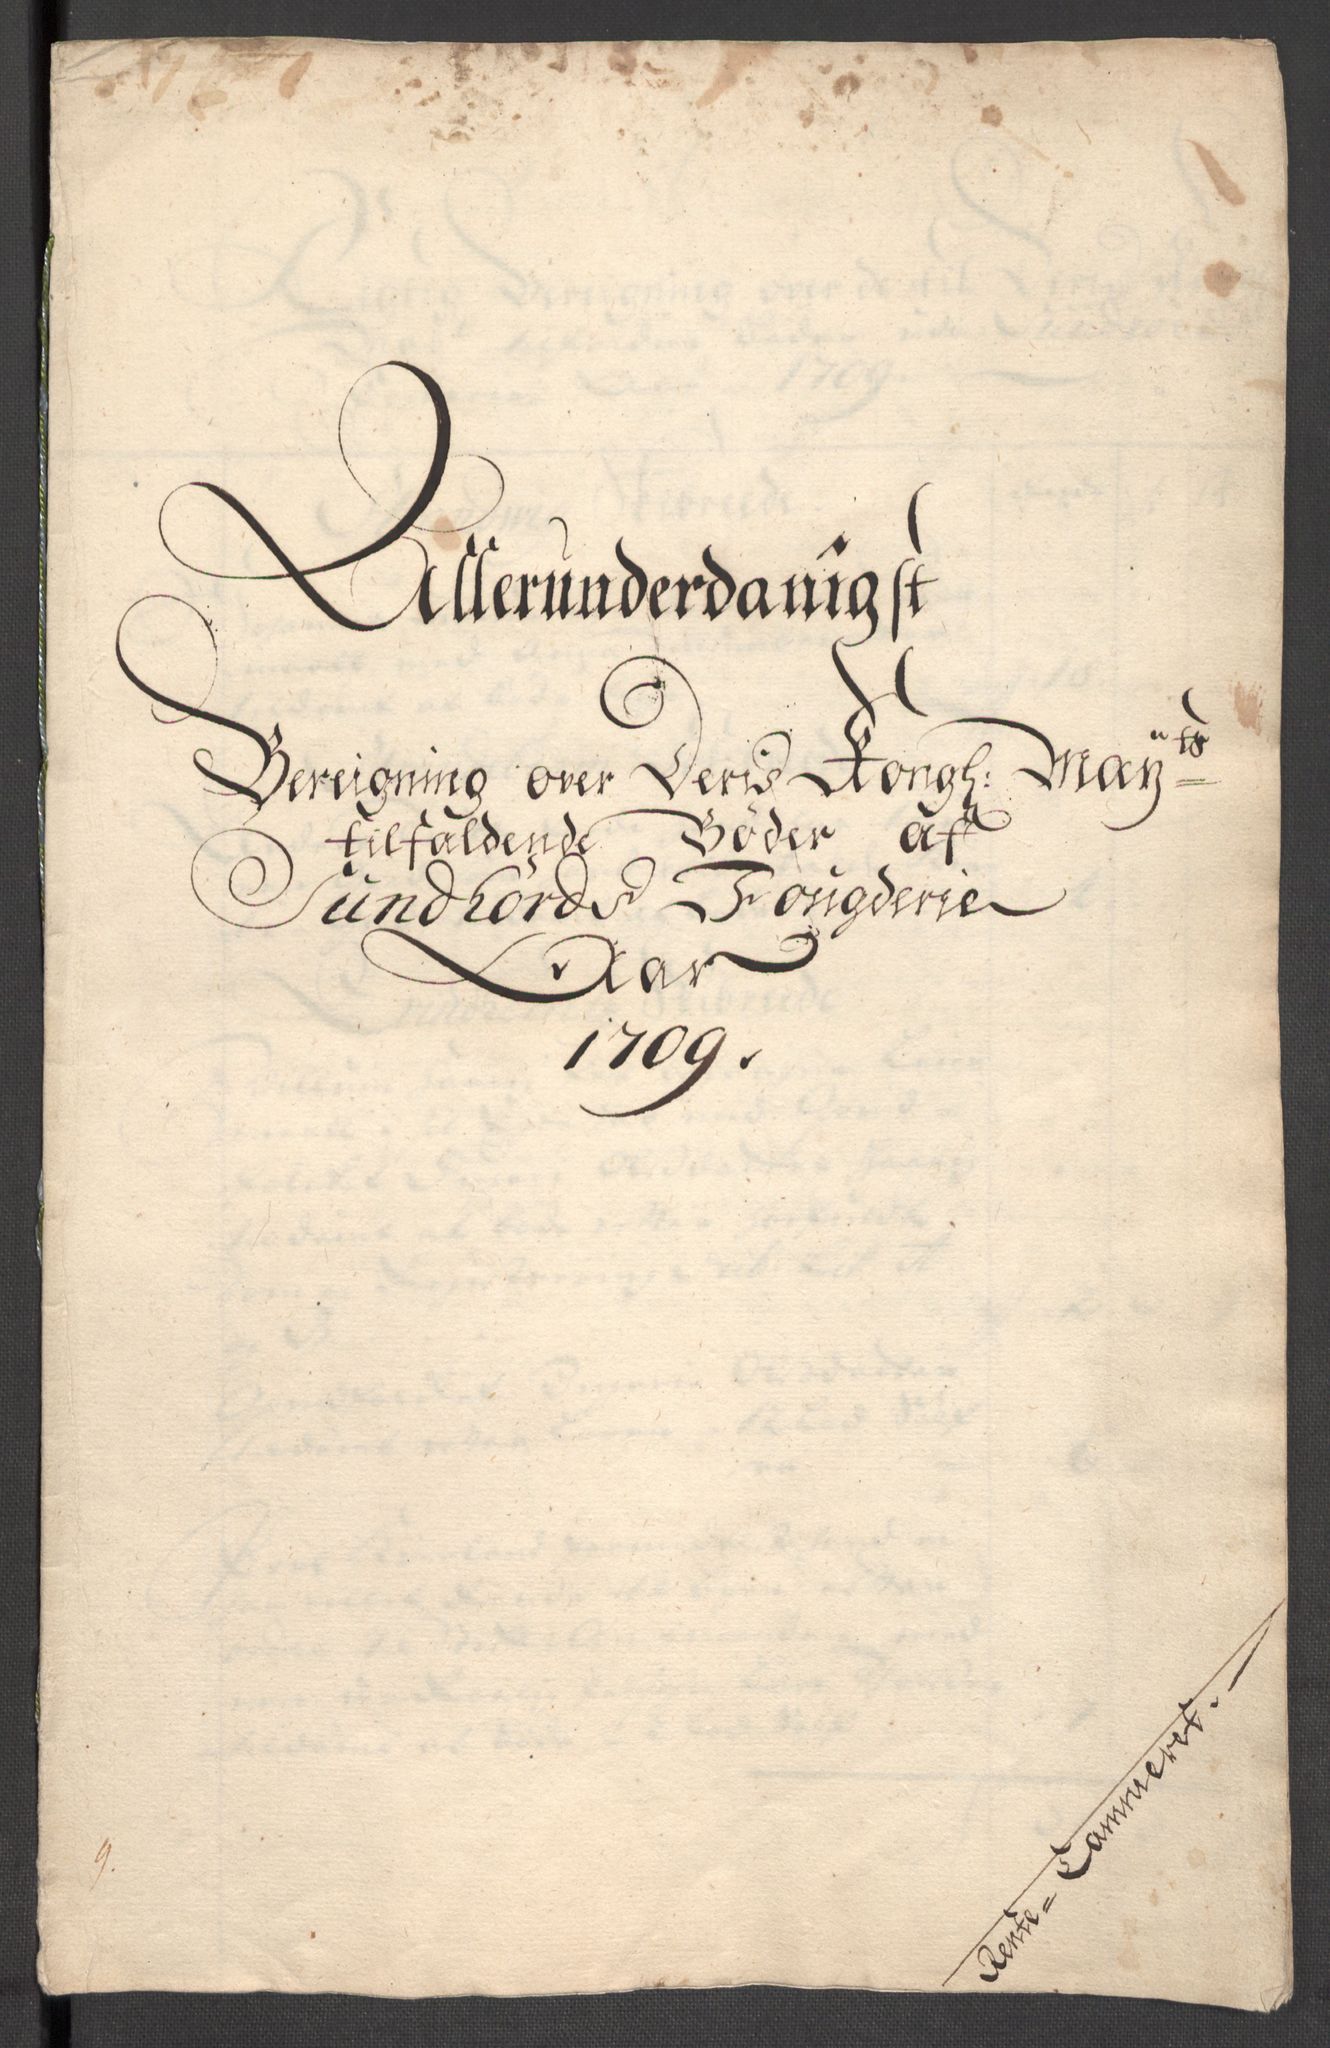 Allerunderdanigst
Bereigning over Deris Kongl: May:ts
tilfaldende Bøder aff
Sundhörds Fougderie
Aar
1709.
Rente=Cammeret.
9.